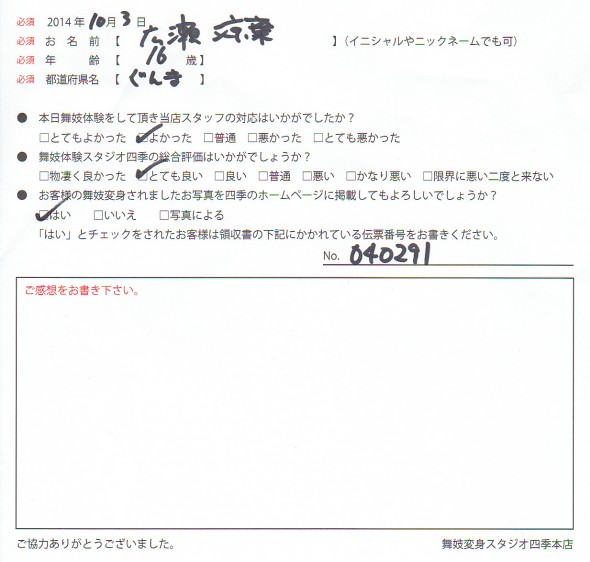 必須 2014年10月3日
必須 お名前【 広瀬 京華 】(イニシャルやニックネームでも可)
必須 年 齢【 16 歳】
必須 都道府県名【 ぐんま 】
● 本日舞妓体験をして頂き当店スタッフの対応はいかがでしたか?
□とてもよかった ☑よかった □普通 □悪かった □とても悪かった
● 舞妓体験スタジオ四季の総合評価はいかがでしょうか?
□物凄く良かった ☑とても良い □良い □普通 □悪い □かなり悪い □限界に悪い二度と来ない
● お客様の舞妓変身されましたお写真を四季のホームページに掲載してもよろしいでしょうか?
☑はい □いいえ □写真による
「はい」とチェックをされたお客様は領収書の下記にかかれている伝票番号をお書きください。
No. 040291
ご感想をお書き下さい。
ご協力ありがとうございました。 舞妓変身スタジオ四季本店